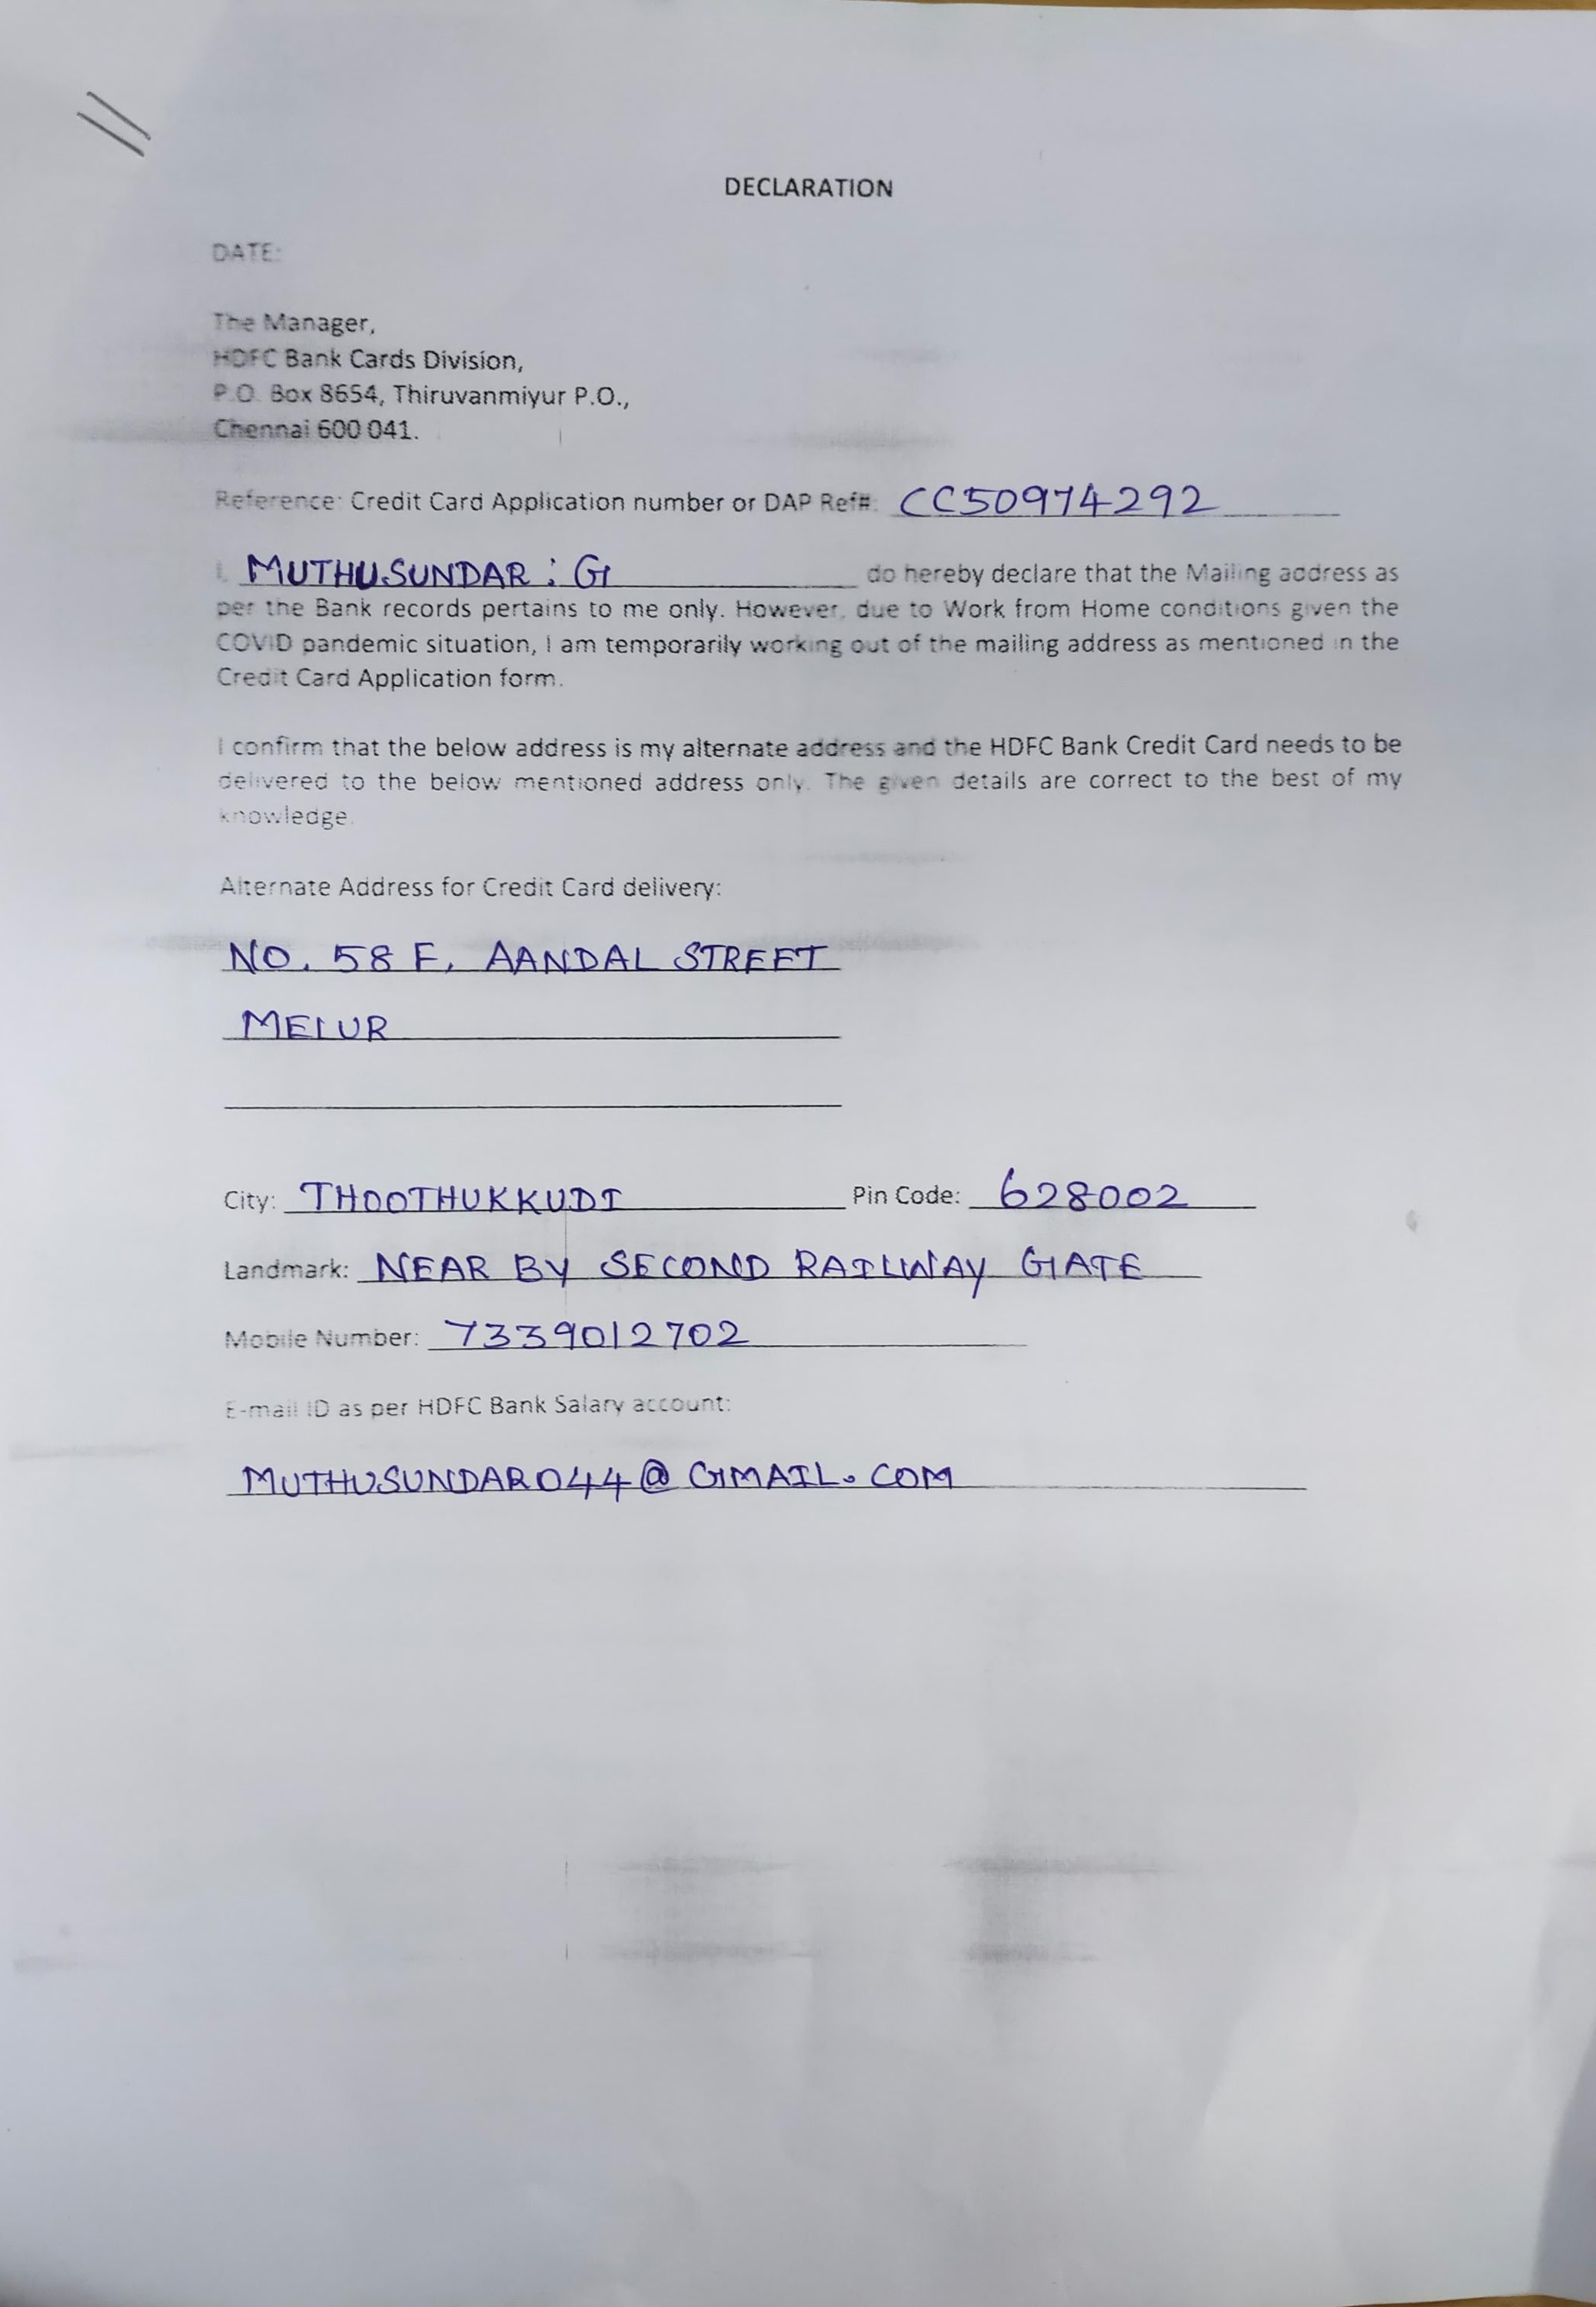 DECLARATION
DATE:
The Manager,
HDFC Bank Cards Division,
P.O. Box 8654, Thiruvanmiyur P.O.,
Chennai 600 041.
Reference: Credit Card Application number or DAP Ref#: CC50974292
I, MUTHUSUNDAR : G do hereby declare that the Mailing address as
per the Bank records pertains to me only. However, due to Work from Home conditions given the
COVID pandemic situation, I am temporarily working out of the mailing address as mentioned in the
Credit Card Application form.
I confirm that the below address is my alternate address and the HDFC Bank Credit Card needs to be
delivered to the below mentioned address only. The given details are correct to the best of my
knowledge.
Alternate Address for Credit Card delivery:
NO. 58 F, AANDAL STREET
MELUR
City: THOOTHUKKUDI Pin Code: 628002
Landmark: NEAR BY SECOND RAILWAY GATE
Mobile Number: 7339012702
E-mail ID as per HDFC Bank Salary account:
MUTHUSUNDAR044@GMAIL.COM